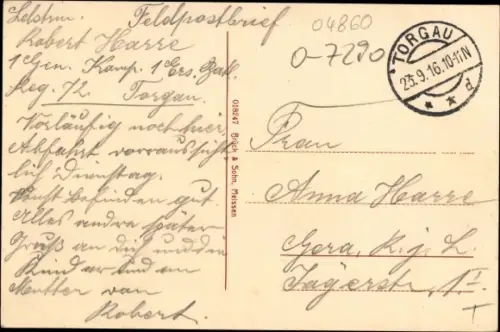 Feldpostbrief
Robert Harre
1 Gen. Komp. 1 Ers. Batl.
Reg. 72 Torgau.
Vorläufig noch hier,
Abfahrt vorraussicht
lich Dienstag.
Sonst befinden gut.
Alles andre später
Gruß an dich und den
Kindern und an
Mutter von
Robert.
018247 Brück & Sohn, Meissen
04860
0-7290
TORGAU
23.9.16.10-11N
* * d
Frau
Anna Harre
Gera, R. j. L.
Jägerstr.